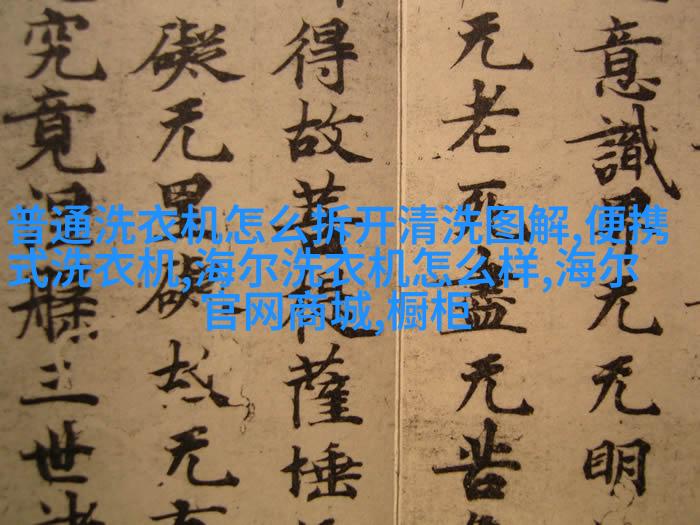 普通洗衣机怎么拆开清洗图解,便携
式洗衣机,海尔洗衣机怎么样,海尔
官网商城,橱柜
意識界无无明
无老死盡无苦
得故菩提薩埵
礙无罣礙故无有
究竟涅槃三世諸